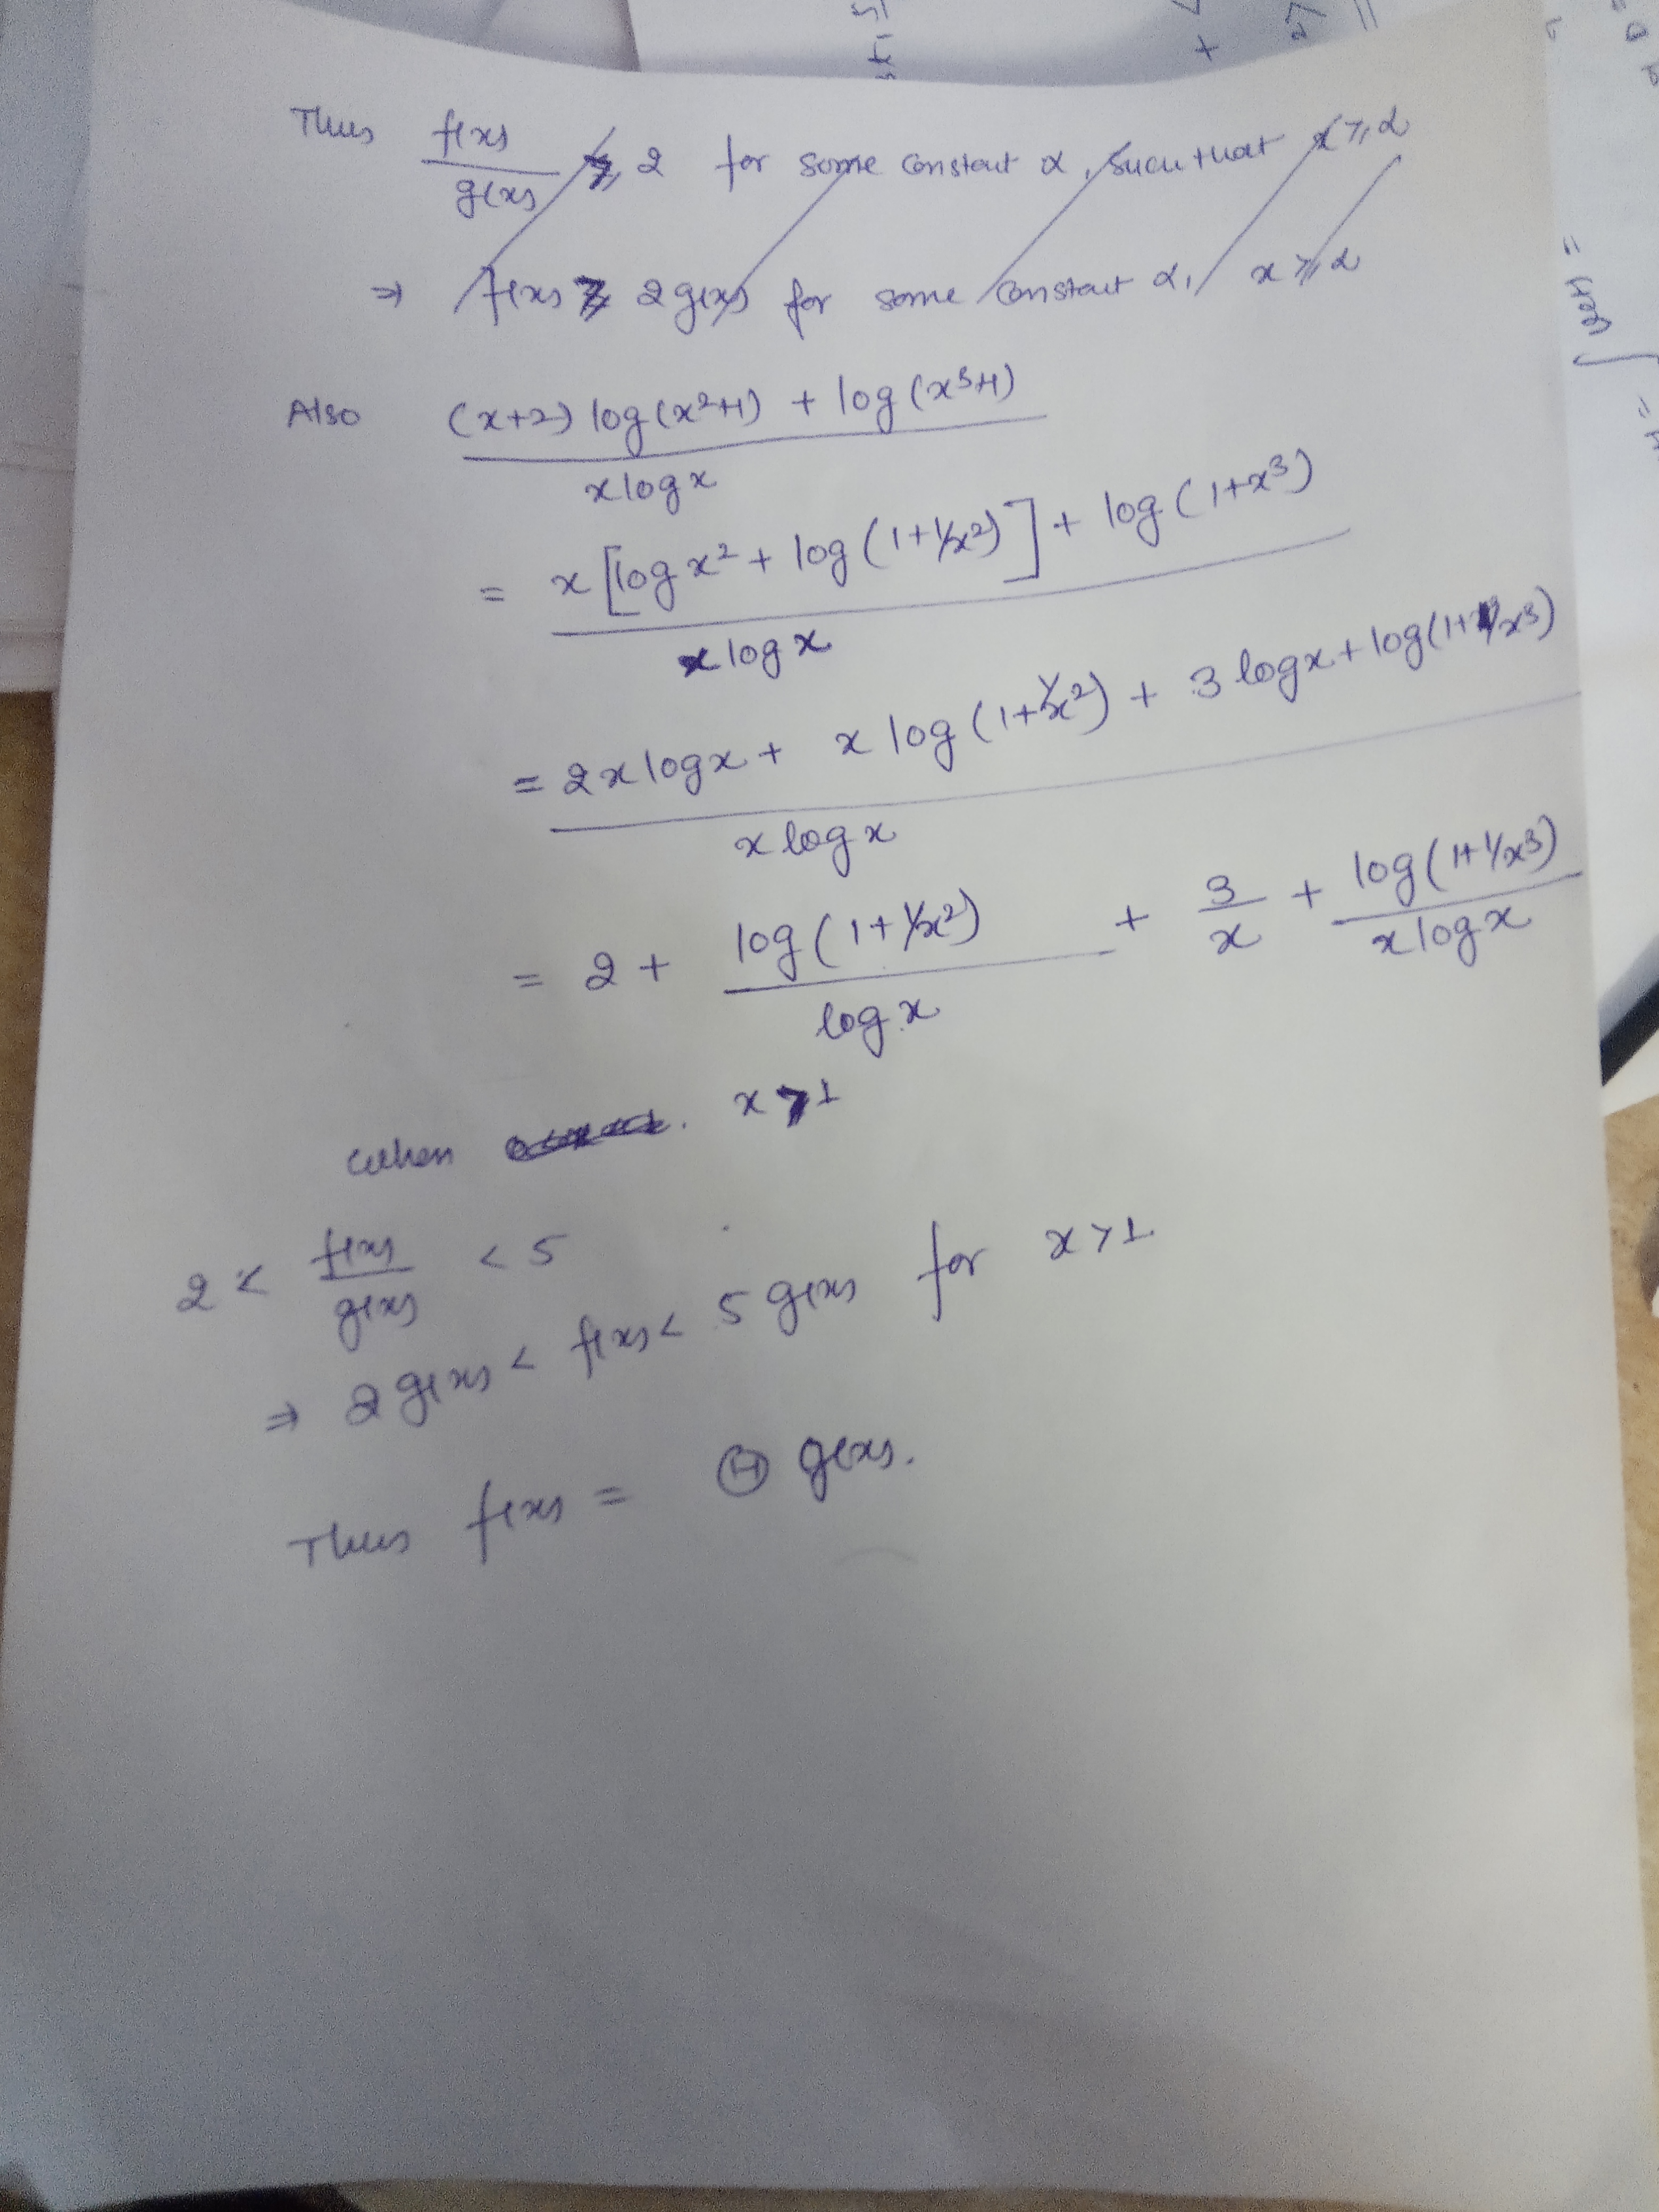 Thus f(x)/g(x) ≥ 2 for some constant α, such that x ≥ α
⇒ f(x) ≥ 2g(x) for some constant α, x ≥ α
Also (x+2) log(x²+1) + log(x³+1)
x log x
= x [log x² + log(1+1/x²)] + log(1+x³)
x log x
= 2x log x + x log(1+1/x²) + 3 log x + log(1+1/x³)
x log x
= 2 + log(1+1/x²)/log x + 3/x + log(1+1/x³)/x log x
When x > 1
2 < f(x)/g(x) < 5
⇒ 2g(x) < f(x) < 5g(x) for x > 1
Thus f(x) = Θ g(x).